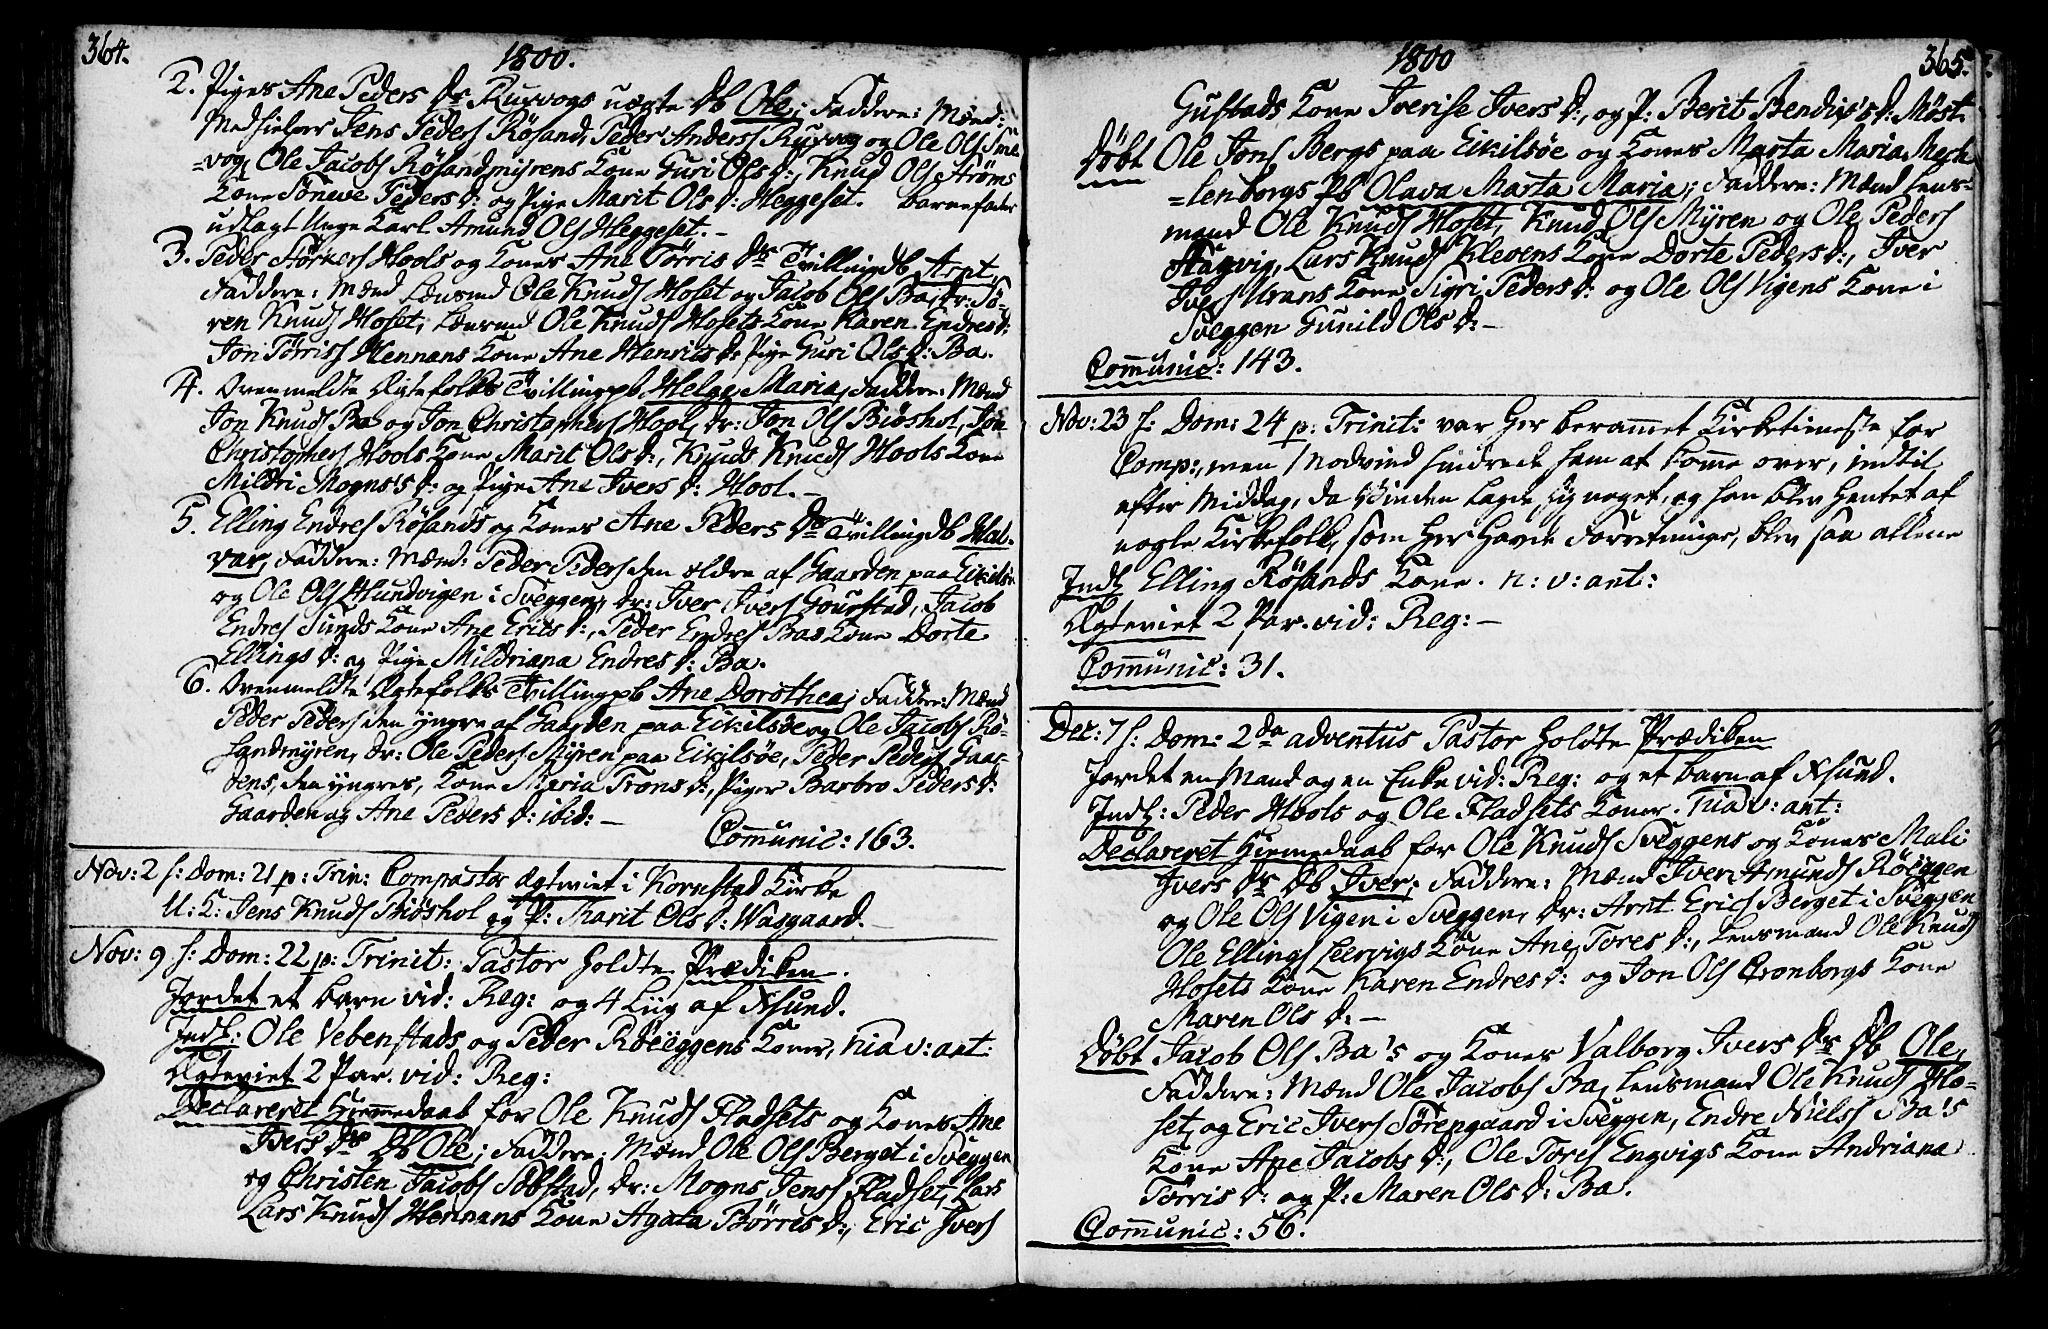 364.
1800.
2. Piges Ane Peders Dr Ruxvogs uægte Db Ole; Faddere: Mænd:
Medhielper Jens Peders Røsand, Peder Anders Ruxvog og Ole Ols
=vog, Ole Jacobs Røsandmyrens Kone Guri Ols d:, Knud Ols Strøms
Kone Søneve Peders d: og Pige Marit Ols d: Heggeset. Barnefader
udlagt Unge Karl Amund Ols Heggeset. –
3. Peder Størkers Hools og Kones Ane Torris Dr Tvillingdb Arnt,
Faddere: Mænd Lensmd Ole Knuds Hoset og Jacob Ols Ba, Dr: Sö-
ren Knuds Hoset, Lensmd Ole Knuds Hosets Kone Karen Endres d:
Jon Törriss Hennans Kone Ane Henrics d: Pige Guri Ols d: Ba.
4. Ovenmeldte Ægtefolks Tvillingpb Helge Maria, Faddere: Mænd
Jon Knuds Ba og Jon Christophers Hool, Dr: Jon Ols Bidshol, Jon
Christophers Hools Kone Marit Ols d:, Knud Knuds Hools Kone
Mildri Mogns's d: og Pige Ane Ivers d: Hool. –
5. Elling Endres Røsands og Kones Ane Peders Dr Tvillingdb Hal-
var, Faddere: Mænd: Peder Peders den ældre af Gaarden paa Eikilsöe
og Ole Ols Hundvigen i Sveggen, Dr: Iver Ivers Gourstad, Jacob
Endres Sunds Kone Ane Erics d:, Peder Endres Bas Kone Dorte
Ellings d: og Pige Mildriana Endres d: Ba.
6. Ovenmeldte Ægtefolks Tvillingpb Ane Dorothea; Faddere: Mænd
Peder Peders den yngre af Gaarden paa Eikilsöe og Ole Jacobs Rö-
sandmyren, Dr: Ole Peders Myren paa Eikilsöe, Peder Peders Gaar-
dens, den yngres, Kone Maria Trons d:, Piger Barbro Peders d:
Gaarden og Ane Peders d: ibid: –
Comunic: 163.
Nov: 2 s: Dom: 21 p: Trin: Compastor Ægteviet i Kornstad Kirke
U: K: Jens Knuds Bidshol og P: Marit Ols d: Wasgaard. –
Nov: 9 s: Dom: 22 p: Trinit: Pastor holdte Prædiken.
Jordet et barn vid: Reg: og 4 Liig af Xsund.
Indl: Ole Vebenstads og Peder Röeÿggens Koner, nia v: ant:
Ægteviet 2 Par. vid: Reg:
Declareret Hiemedaab for Ole Knuds Fladsets og Kones Ane
Ivers Dr Db Ole; Faddere: Mænd Ole Ols Berget i Sveggen
og Christen Jacobs Sobstad, Dr: Mogns Jenss Fladset, Lars
Lars Knuds Hennans Kone Agata Børres d:, Eric Ivers
1800
365.
Gustads Kone Iverise Ivers d:, og P: Berit Bendix's d: Møst.
Döbt Ole Jons Bergs paa Eikilsöe og Kones Marta Maria Mech
=lenborgs Pb Olava Marta Maria; Faddere: Mænd Lens-
mand Ole Knuds Hoset, Knud Ols Myren og Ole Peders
Stagvig, Lars Knuds Klevens Kone Dorte Peders d:, Iver
Ivers Urans Kone Sigri Peders d: og Ole Ols Vigens Kone i
Sveggen Gunild Ols d: –
Comunic: 143.
Nov: 23 s: Dom: 24 p: Trinit: var her berammet Kirketieneste for
Comp:, men Modvind hindrede ham at komme over, indtil
efter Middag, da Vinden lagde sig noget, og han blev hentet af
nogle Kirkefolk, som her havde Forretninger, blev saa allene
Indl Elling Røsands Kone. n: v: ant:
Ægteviet 2 Par. vid: Reg: –
Comunic: 31.
Dec: 7 s: Dom: 2da adventus Pastor holdte Prædiken
Jordet en Mand og en Enke vid: Reg: og et barn af Xsund.
Indl: Peder Hools og Ole Fladsets Koner. nia v: ant:
Declareret Hiemedaab for Ole Knuds Sveggens og Kones Mali
Ivers Dr Db Iver; Faddere: Mænd Iver Amunds Röeÿggen
og Ole Ols Vigen i Sveggen, Dr: Arnt Erics Berget i Sveggen
Ole Ellings Leervigs Kone Ane Tores d:, Lensmand Ole Knuds
Hosets Kone Karen Endres d: og Jon Ols Cronborgs Kone
Maren Ols d: –
Döbt Jacob Ols Ba's og Kones Valborg Ivers Dr Db Ole,
Faddere: Mænd Ole Jacobs Ba, Lensmand Ole Knuds Ho-
set, og Eric Ivers Sörengaard i Sveggen, Endre Nielss Ba's
Kone Ane Jacobs d:, Ole Tores Engvigs Kone Andriana
Torris d: og P: Maren Ols d: Ba.
Comunic: 56.